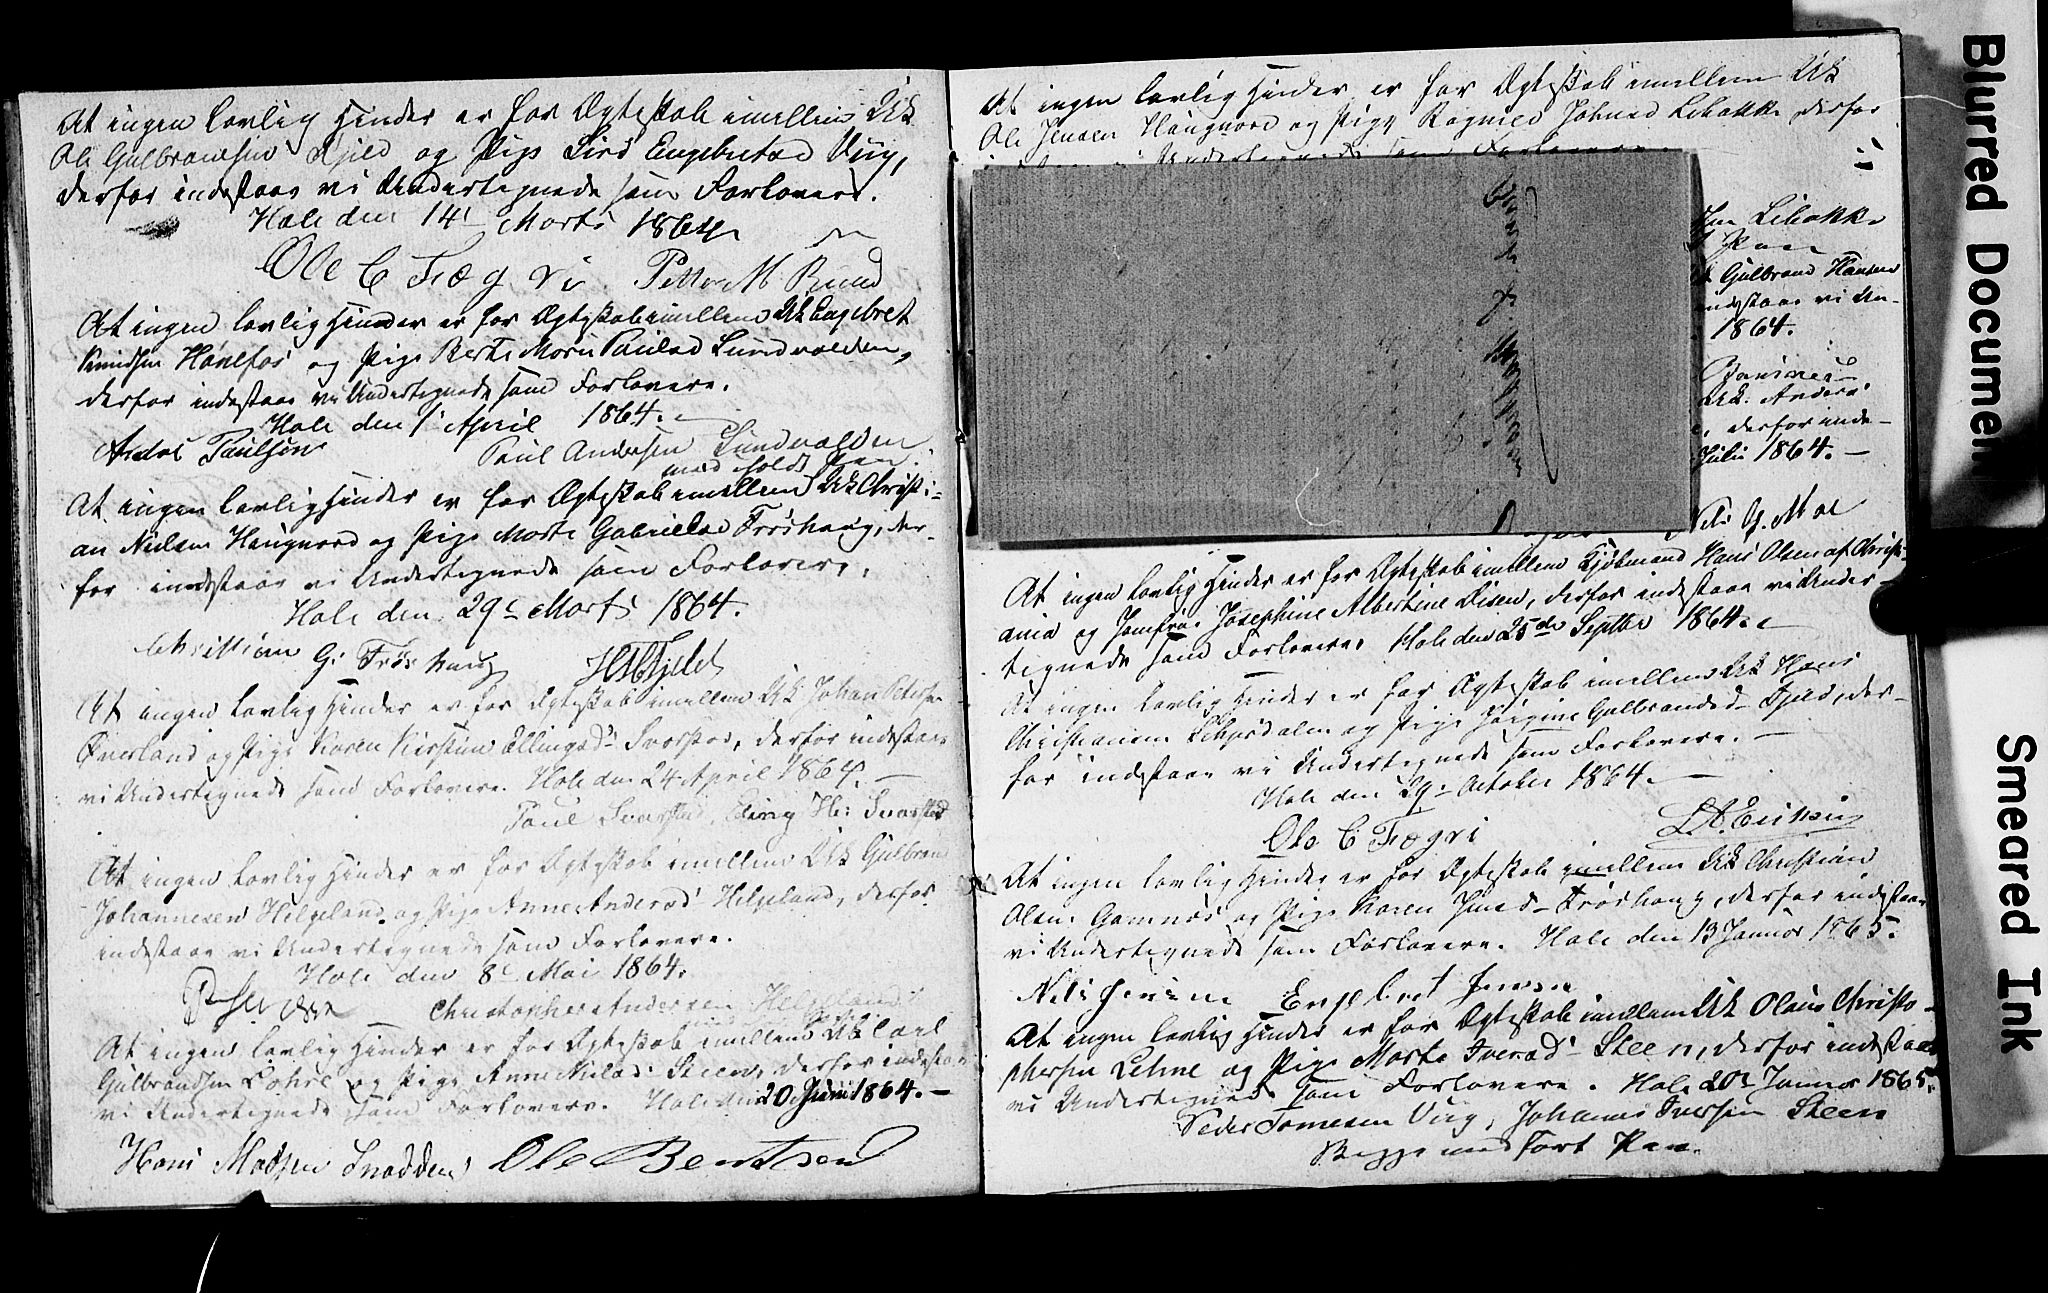 At ingen lovlig Hinder er for Ægteskab imellem Uk
Ole Gulbrandsen Fjeld og Pige Siri Engebretsd Viig,
derfor indestaar vi Undertegnede som Forlovere.
Hole den 14 Marts 1864
Ole C Fægri Petter M Ruud
At ingen lovlig Hinder er for Ægteskab imellem Uk Engebret
Knudsen Hønefos og Pige Berte Marie Paulsd Sundvolden,
derfor indestaar vi Undertegnede som Forlovere.
Hole den 1 April 1864.
Anders Paulsen Paul Andersen Sundvolden
med holdt Pen.
At ingen lovlig Hinder er for Ægteskab imellem Uk Christi-
an Nielsen Haugnord og Pige Marte Gabrielsd Frøshaug, der-
for indestaar vi Undertegnede som Forlovere.
Hole den 29 Marts 1864.
Christian G. Frøshaug H Fjeld
At ingen lovlig Hinder er for Ægteskab imellem Uk Johan Peters
Øverland og Pige Karen Kirstine Ellingsd Svarstad, derfor indestaar
vi Undertegnede som Forlovere. Hole den 24 April 1864.
Paul Svarstad, Eling H: Svarstad
At ingen lovlig Hinder er for Ægteskab imellem Uk Gulbrand
Johannesen Helgeland og Pige Anne Andersd Helgeland, derfor
indestaar vi Undertegnede som Forlovere.
Hole den 8 Mai 1864.
Christopher Andersen Helgeland
At ingen lovlig Hinder er for Ægteskab imellem Uk Carl
Gulbrandsen Lohre og Pige Anne Nielsd Steen, derfor indestaar
vi Undertegnede som Forlovere. Hole den 20 Juni 1864. —
Hans Madsen Ole Berntsen
At ingen lovlig Hinder er for Ægteskab imellem Uk
Ole Jensen Haugnord og Pige Ragnild Johnsd Libakke derfor
Undertegnede som Forlovere
Libakke
Pen
Gulbrand Hansen
indestaar vi Un-
1864.
Uk. Anders
, derfor inde-
Juli 1864. —
Nils G. Moe
At ingen lovlig Hinder er for Ægteskab imellem Kjøbmand Hans Olsen af Christi-
ania og Jomfrue Josephine Albertine Disen, derfor indestaar vi Under-
tegnede som Forlovere. Hole den 25de Septbr 1864.
At ingen lovlig Hinder er for Ægteskab imellem Uk Hans
Christiansen Lehnsdalen og Pige Jørgine Gulbrandsd Fjeld, der-
for indestaar vi Undertegnede som Forlovere. —
Hole den 29 October 1864. —
Ole C Fægri Eriksen
At ingen lovlig Hinder er for Ægteskab imellem Uk Christian
Olsen Gomnæs og Pige Karen Jensd Frøshaug, derfor indestaar
vi Undertegnede som Forlovere. Hole den 13 Januar 1865.
Nils Jensen Engebret Jensen
At ingen lovlig Hinder er for Ægteskab imellem Uk Olaus Christo-
phersen Lehne og Pige Marte Iversd Steen, derfor indestaar
vi Undertegnede som Forlovere. Hole 20 Januar 1865.
Peder Tomesen Viig, Johannes Iversen Steen
Begge med ført Pen.
Blurred Document
Smeared Ink